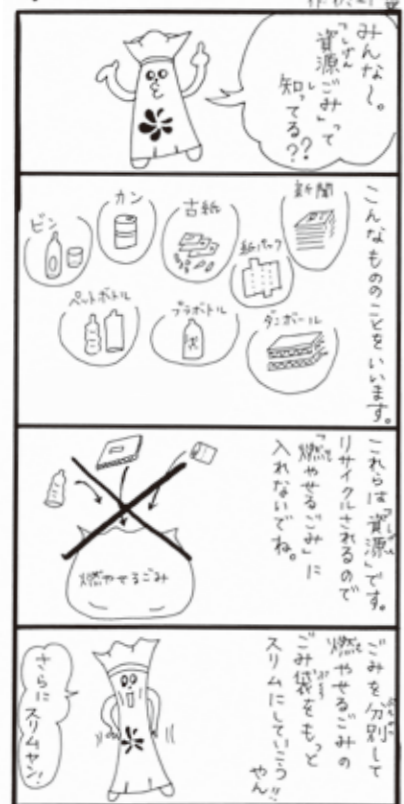 みんな〜。
「資源ごみ」って
しげん
知ってる??
し
こんなもののことをいいます。
新聞
古紙
カン
ビン
紙パック
ペットボトル
プラボトル
ダンボール
これらは「資源」です。
しげん
リサイクルされるので
「燃やせるごみ」に
入れないでね。
燃やせるごみ
ごみを分別して
燃やせるごみの
ごみ袋をもっと
スリムにしていこう
やん!!
さらに
スリムヤン!